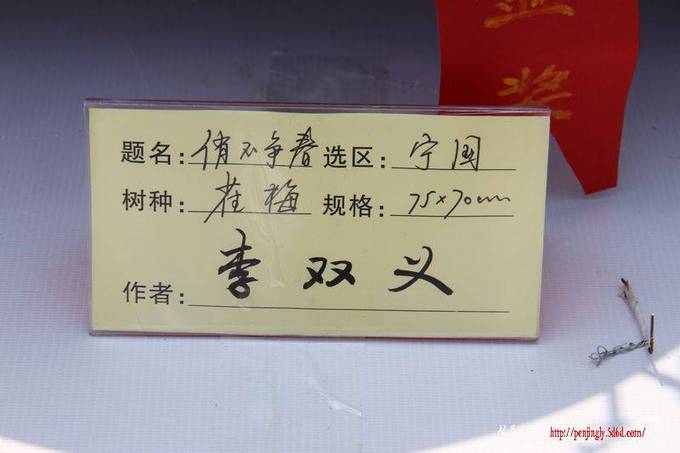 奖
题名: 俏不争春 选区: 宁国
树种: 雀梅 规格: 75×70cm
作者: 李双义
http://penjingly.5d6d.com/